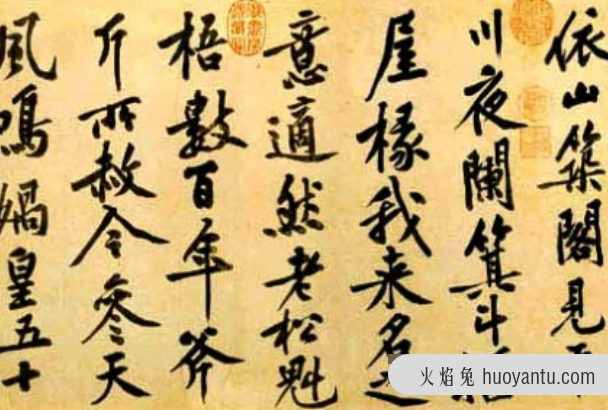 依山築閣見
川夜闌箕斗
屋椽我来名之
意適然老松魁
梧數百年斧
斤所赦今參天
風鳴媧皇五十
火焰兔 huoyantu.com